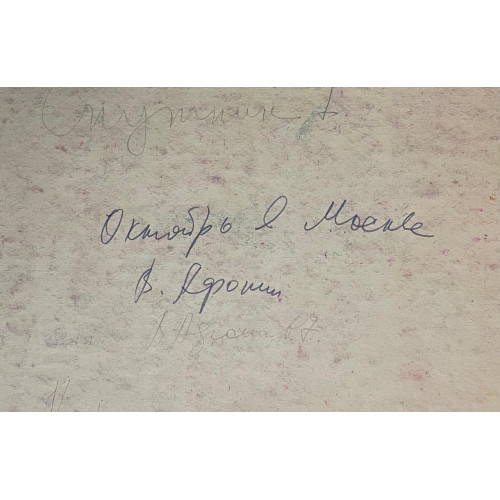 Спутник
Октябрь в Москве
В. Афонин